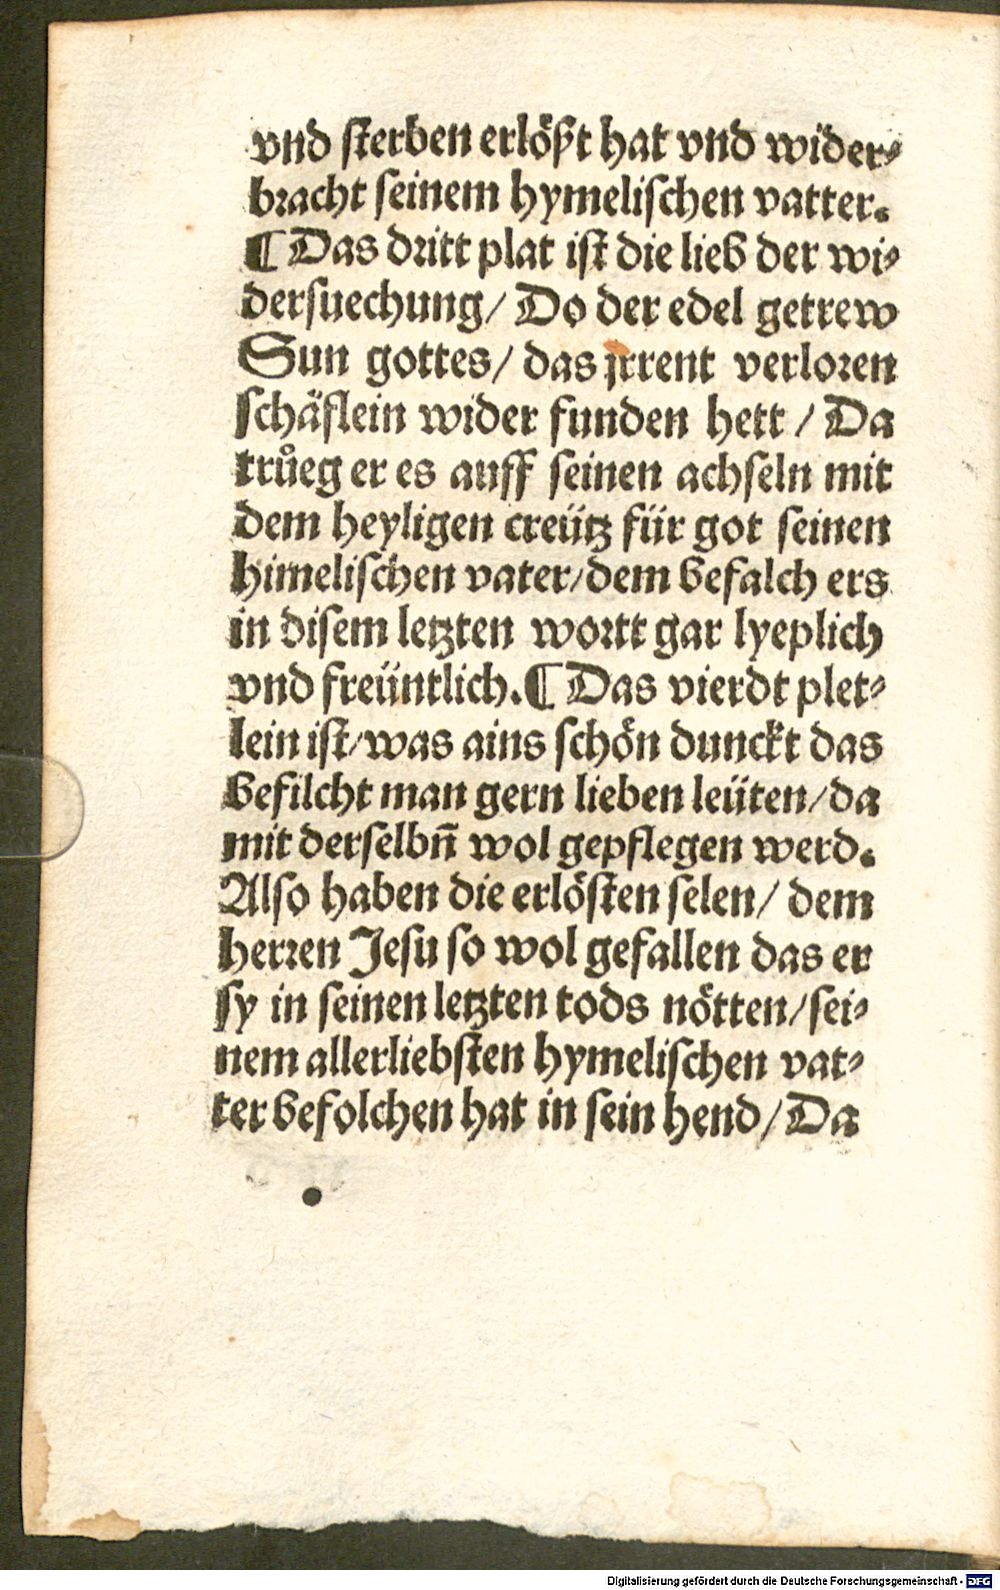 vnd sterben erlößt hat vnd wider⸗
bracht seinem hymelischen vatter.
¶ Das dritt plat ist die lieb der wi⸗
dersuechung/ Do der edel getrew
Sun gottes/ das jrrent verloren
schäflein wider funden hett / Da
trůeg er es auff seinen achseln mit
dem heyligen creütz für got seinen
himelischen vater/dem befalch ers
in disem letzten wortt gar lyeplich
vnd freüntlich.¶ Das vierdt plet⸗
lein ist/was ains schön dunckt das
befilcht man gern lieben leüten/da
mit derselbn̄ wol gepflegen werd.
Also haben die erlösten selen/ dem
herren Jesu so wol gefallen das er
sy in seinen letzten tods nötten/sei⸗
nem allerliebsten hymelischen vat⸗
ter befolchen hat in sein hend/ Da
Digitalisierung gefördert durch die Deutsche Forschungsgemeinschaft - DFG